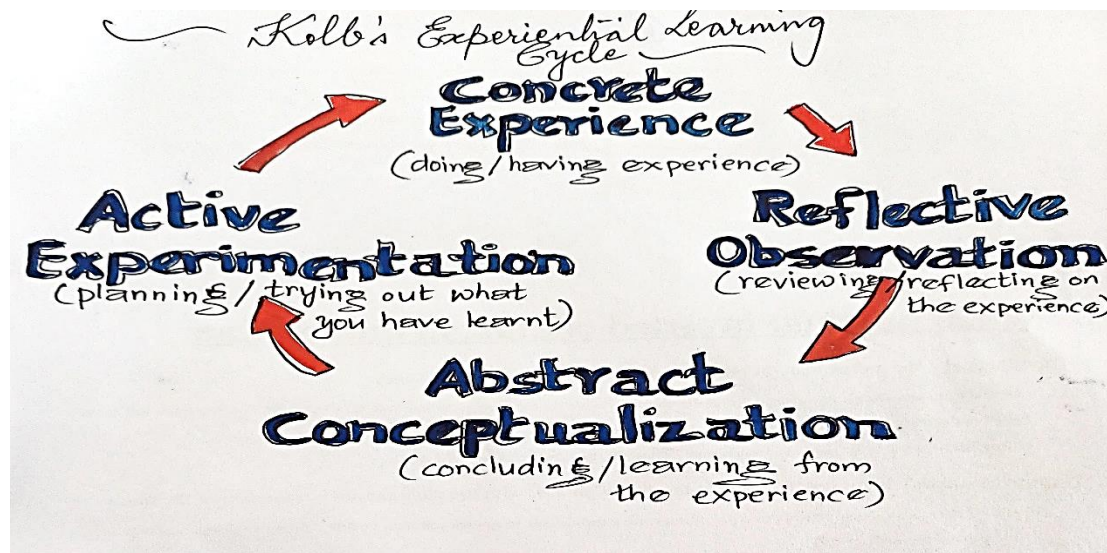 Kolb's Experiential Learning
Cycle
Concrete
Experience
(doing/having experience)
Reflective
Observation
(reviewing/reflecting on
the experience)
Abstract
Conceptualization
(concluding/learning from
the experience)
Active
Experimentation
(planning/trying out what
you have learnt)